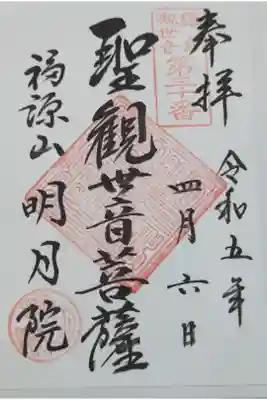 奉拝
第三十番
令和五年
四月六日
聖観世音菩薩
福源山
明月院